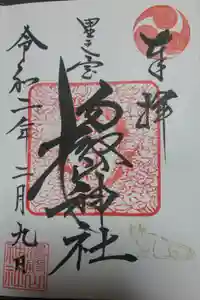 奉拝
里之宮
湯殿山神社
令和二年二月九日